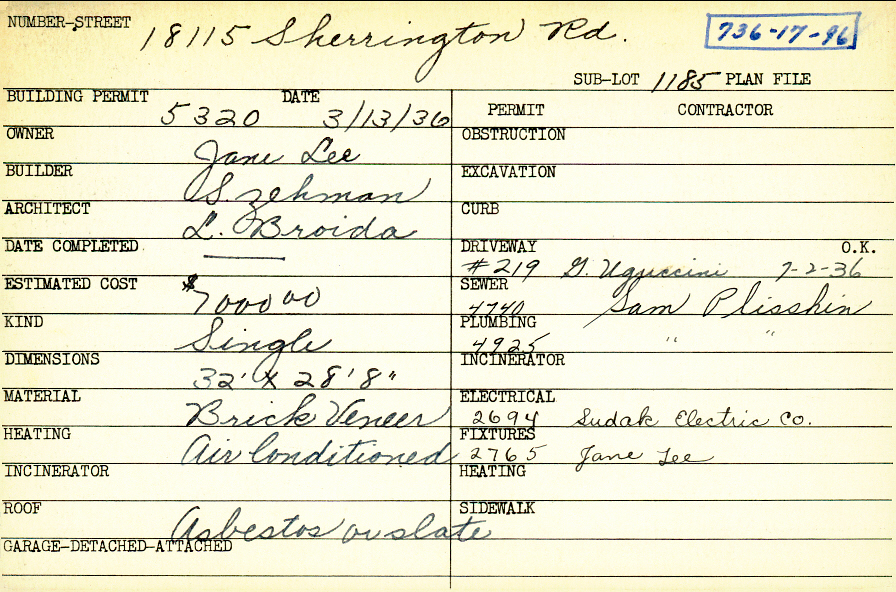 NUMBER-STREET 18115 Sherrington Rd. 736-17-96
SUB-LOT 1185 PLAN FILE
BUILDING PERMIT 5320 DATE 3/13/36
PERMIT CONTRACTOR
OWNER Jane Lee
OBSTRUCTION
BUILDER S. Zehman
EXCAVATION
ARCHITECT L. Broida
CURB
DATE COMPLETED ——
DRIVEWAY #219 G. Uguccini 7-2-36 O.K.
ESTIMATED COST $7000 00
SEWER 4740 Sam Plisshin
KIND Single
PLUMBING 4925 " "
DIMENSIONS 32' X 28' 8"
INCINERATOR
MATERIAL Brick Veneer
ELECTRICAL 2694 Sudak Electric Co.
HEATING Air Conditioned
FIXTURES 2765 Jane Lee
INCINERATOR
HEATING
ROOF Asbestos or slate
SIDEWALK
GARAGE-DETACHED-ATTACHED